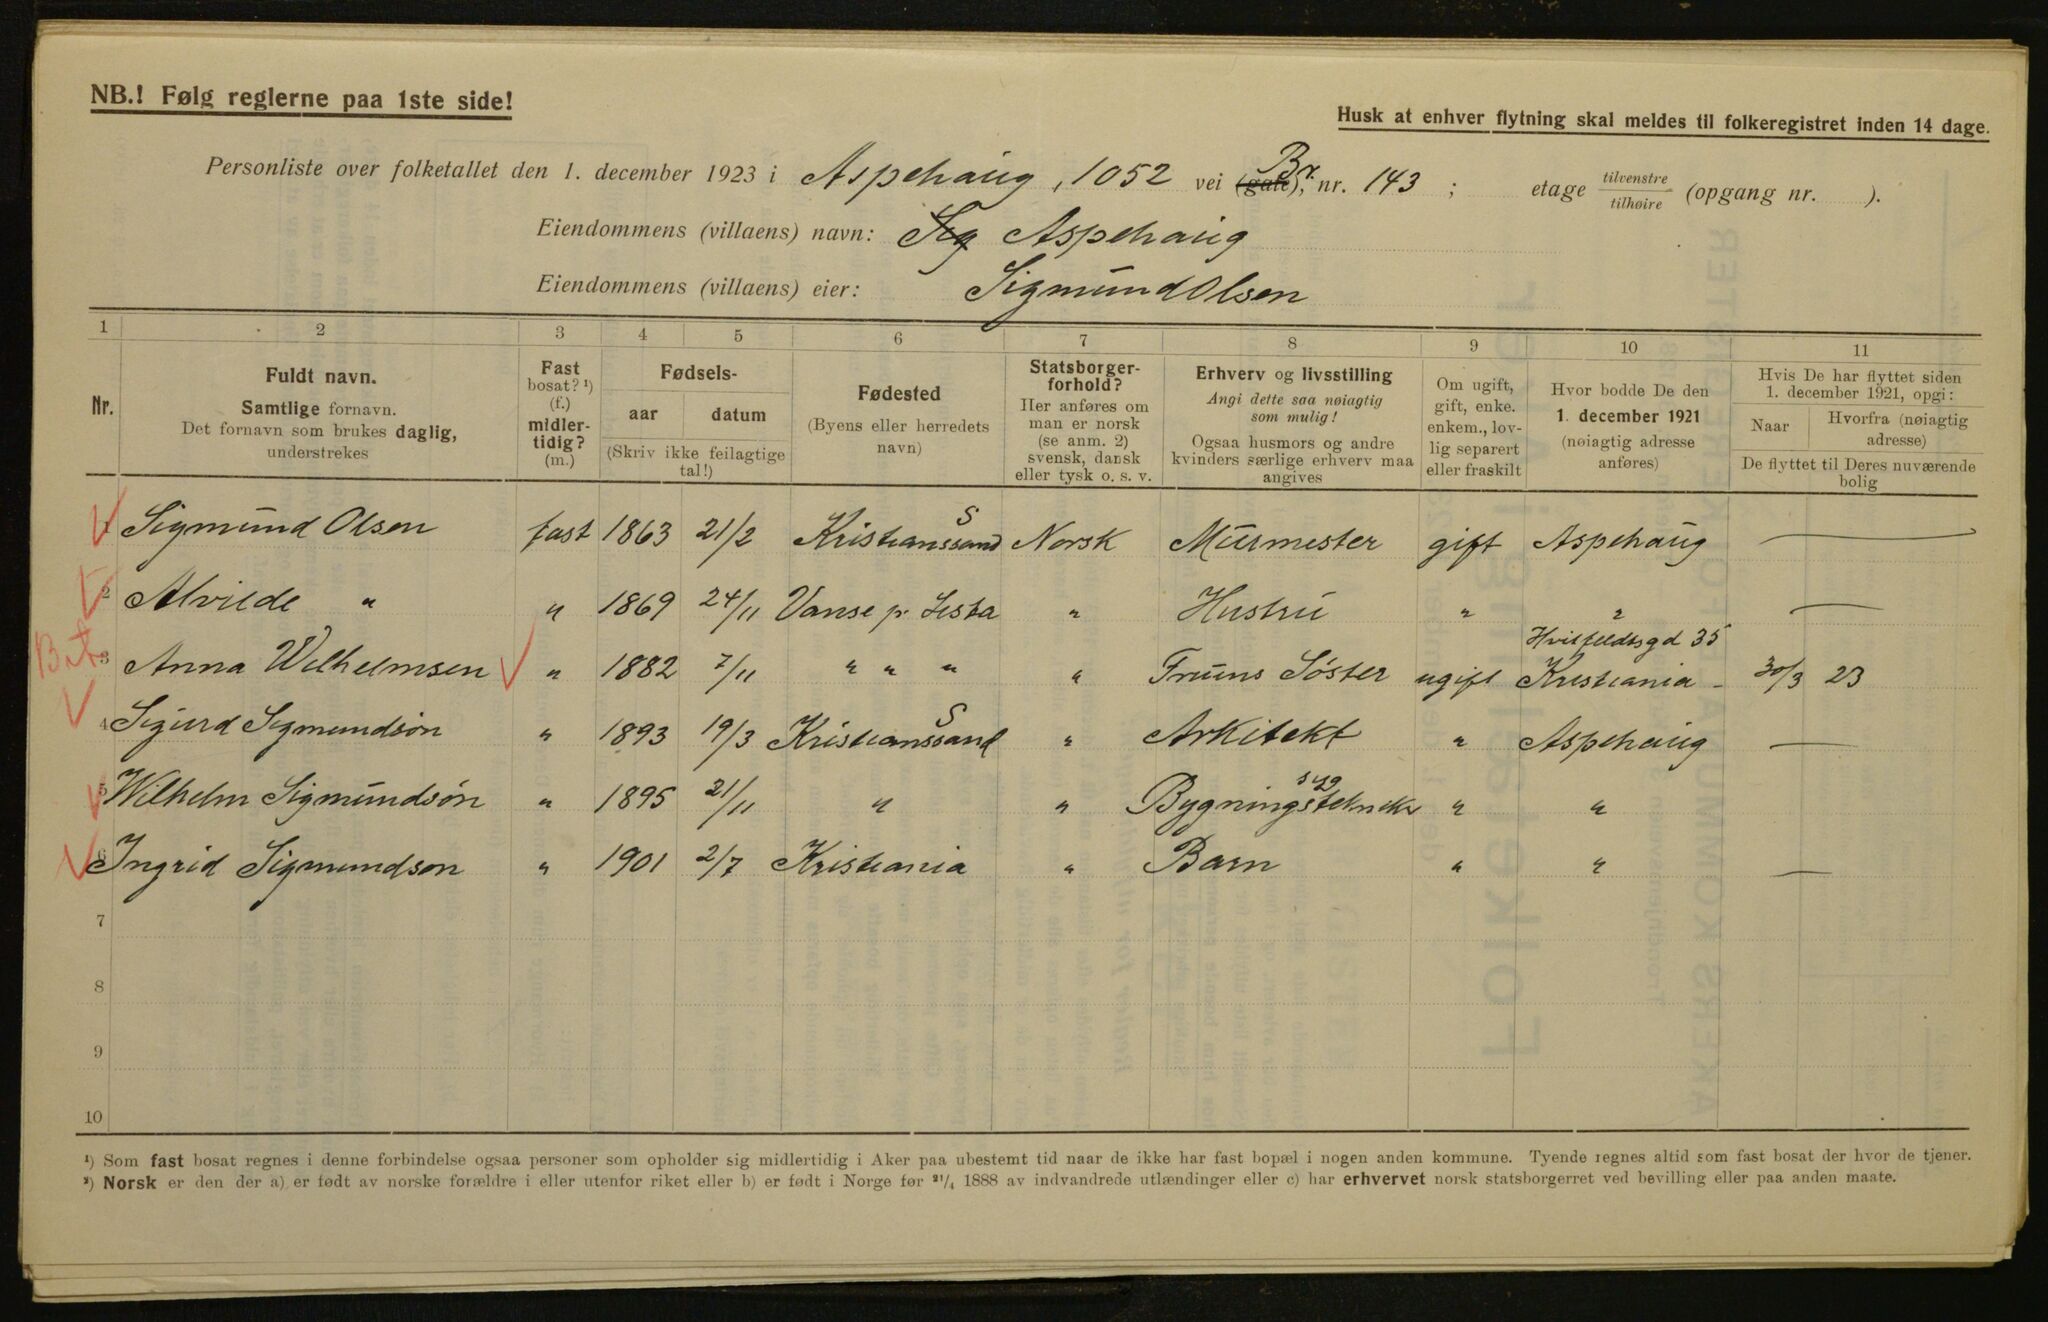 NB.! Følg reglerne paa 1ste side!
Husk at enhver flytning skal meldes til folkeregistret inden 14 dage.
Personliste over folketallet den 1. december 1923 i Aspehaug, 1052 vei (gate), Br. nr. 143 ; etage tilvenstre tilhøire (opgang nr. ).
Eiendommens (villaens) navn: Sig Aspehaug
Eiendommens (villaens) eier: Sigmund Olsen
1 2 3 4 5 6 7 8 9 10 11
Nr.
Fuldt navn.
Samtlige fornavn.
Det fornavn som brukes daglig,
understrekes
Fast
bosat? ¹)
(f.)
midler-
tidig?
(m.)
Fødsels-
aar datum
(Skriv ikke feilagtige
tal!)
Fødested
(Byens eller herredets
navn)
Statsborger-
forhold?
Her anføres om
man er norsk
(se anm. 2)
svensk, dansk
eller tysk o. s. v.
Erhverv og livsstilling
Angi dette saa nøiagtig
som mulig!
Ogsaa husmors og andre
kvinders særlige erhverv maa
angives
Om ugift,
gift, enke.
enkem., lov-
lig separert
eller fraskilt
Hvor bodde De den
1. december 1921
(nøiagtig adresse
anføres)
Hvis De har flyttet siden
1. december 1921, opgi:
Naar Hvorfra (nøiagtig
adresse)
De flyttet til Deres nuværende
bolig
1 Sigmund Olsen fast 1863 21/2 Kristianssand S Norsk Murmester gift Aspehaug —
2 Alvilde " " 1869 24/11 Vanse p. Lista " Hustru " " —
3 Anna Wilhelmsen " 1882 7/11 " " " " Fruens Søster ugift Hvitfeldtsgd 35 Kristiania - 30/3 23
4 Sigurd Sigmundsøn " 1893 19/3 Kristianssand S " Arkitekt " Aspehaug —
5 Wilhelm Sigmundsøn " 1895 21/11 " " Bygningstekniker " "
6 Ingrid Sigmundsøn " 1901 2/7 Kristiania " Barn " " —
7
8
9
10
¹) Som fast bosat regnes i denne forbindelse ogsaa personer som opholder sig midlertidig i Aker paa ubestemt tid naar de ikke har fast bopæl i nogen anden kommune. Tyende regnes altid som fast bosat der hvor de tjener.
²) Norsk er den der a) er født av norske forældre i eller utenfor riket eller b) er født i Norge før 21/4 1888 av indvandrede utlændinger eller c) har erhvervet norsk statsborgerret ved bevilling eller paa anden maate.